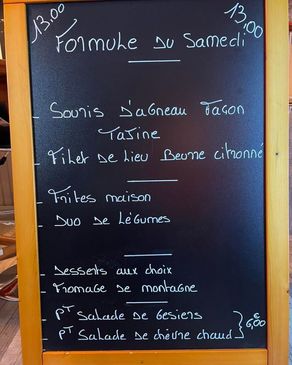 13.00 13.00
Formule Du Samedi
- Souris D'agneau Façon
Tajine
- Filet de Lieu Beurre citronné
- Frites maison
- Duo de Légumes
- Desserts aux choix
- Fromage de montagne
- PT Salade de Gesiers
- PT Salade de chèvre chaud } 6,00 €